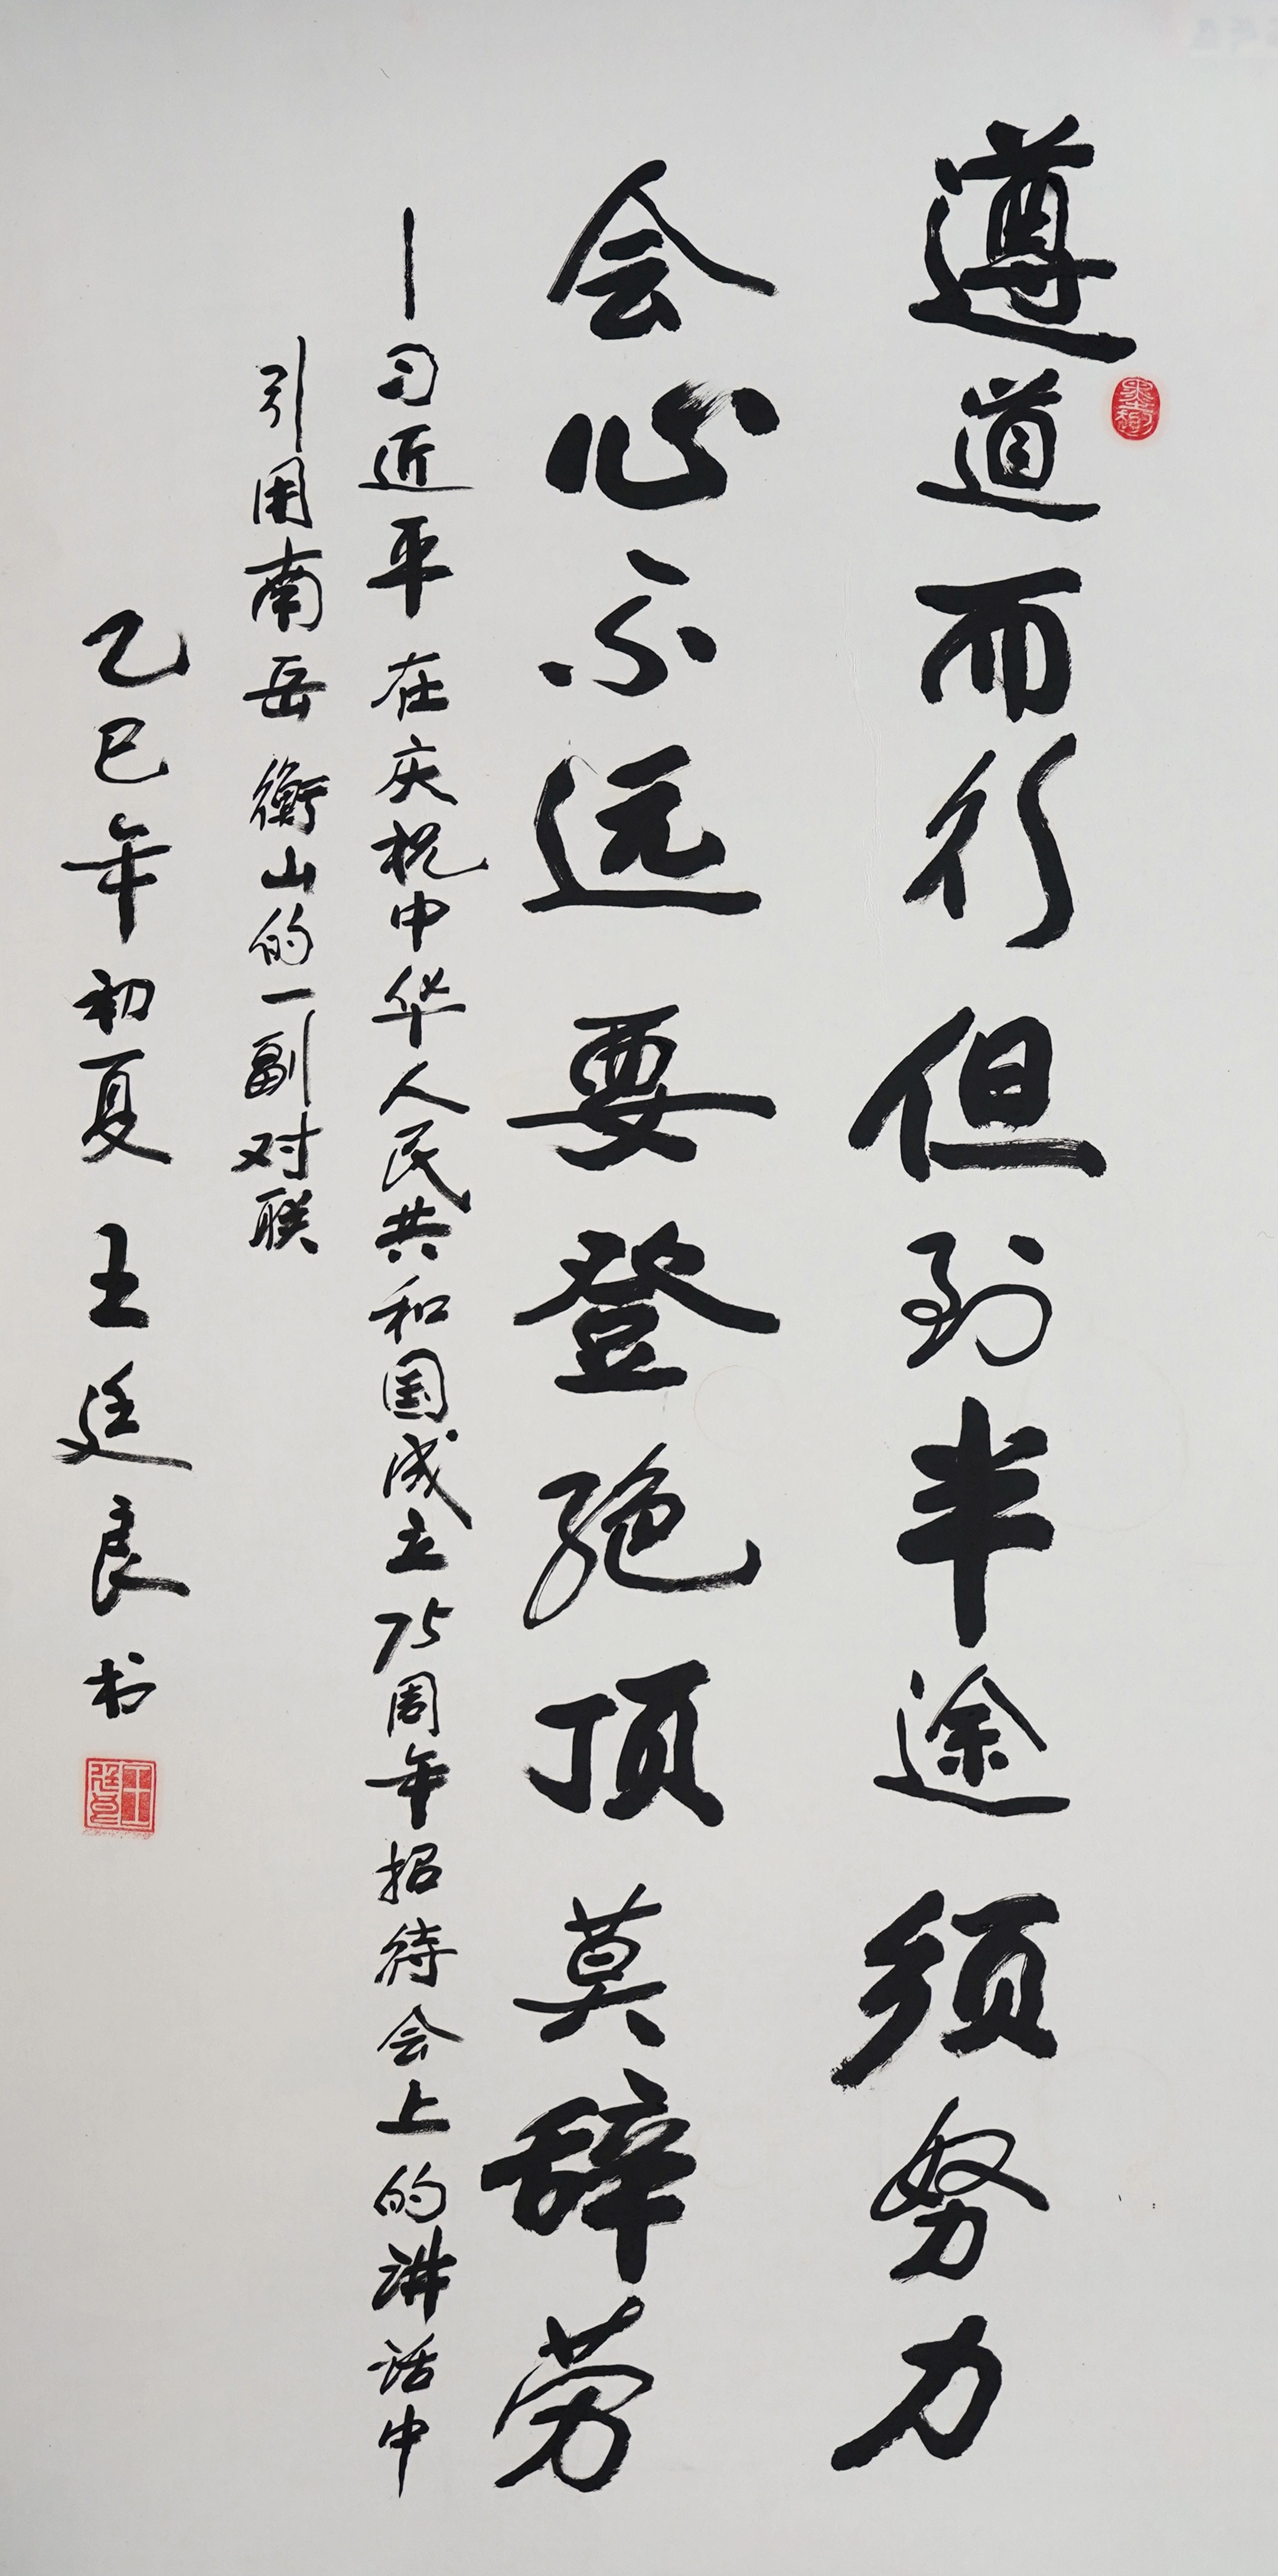 遵道而行但到半途须努力
会心不远要登绝顶莫辞劳
—习近平在庆祝中华人民共和国成立75周年招待会上的讲话中
引用南岳衡山的一副对联
乙巳年初夏王廷良书